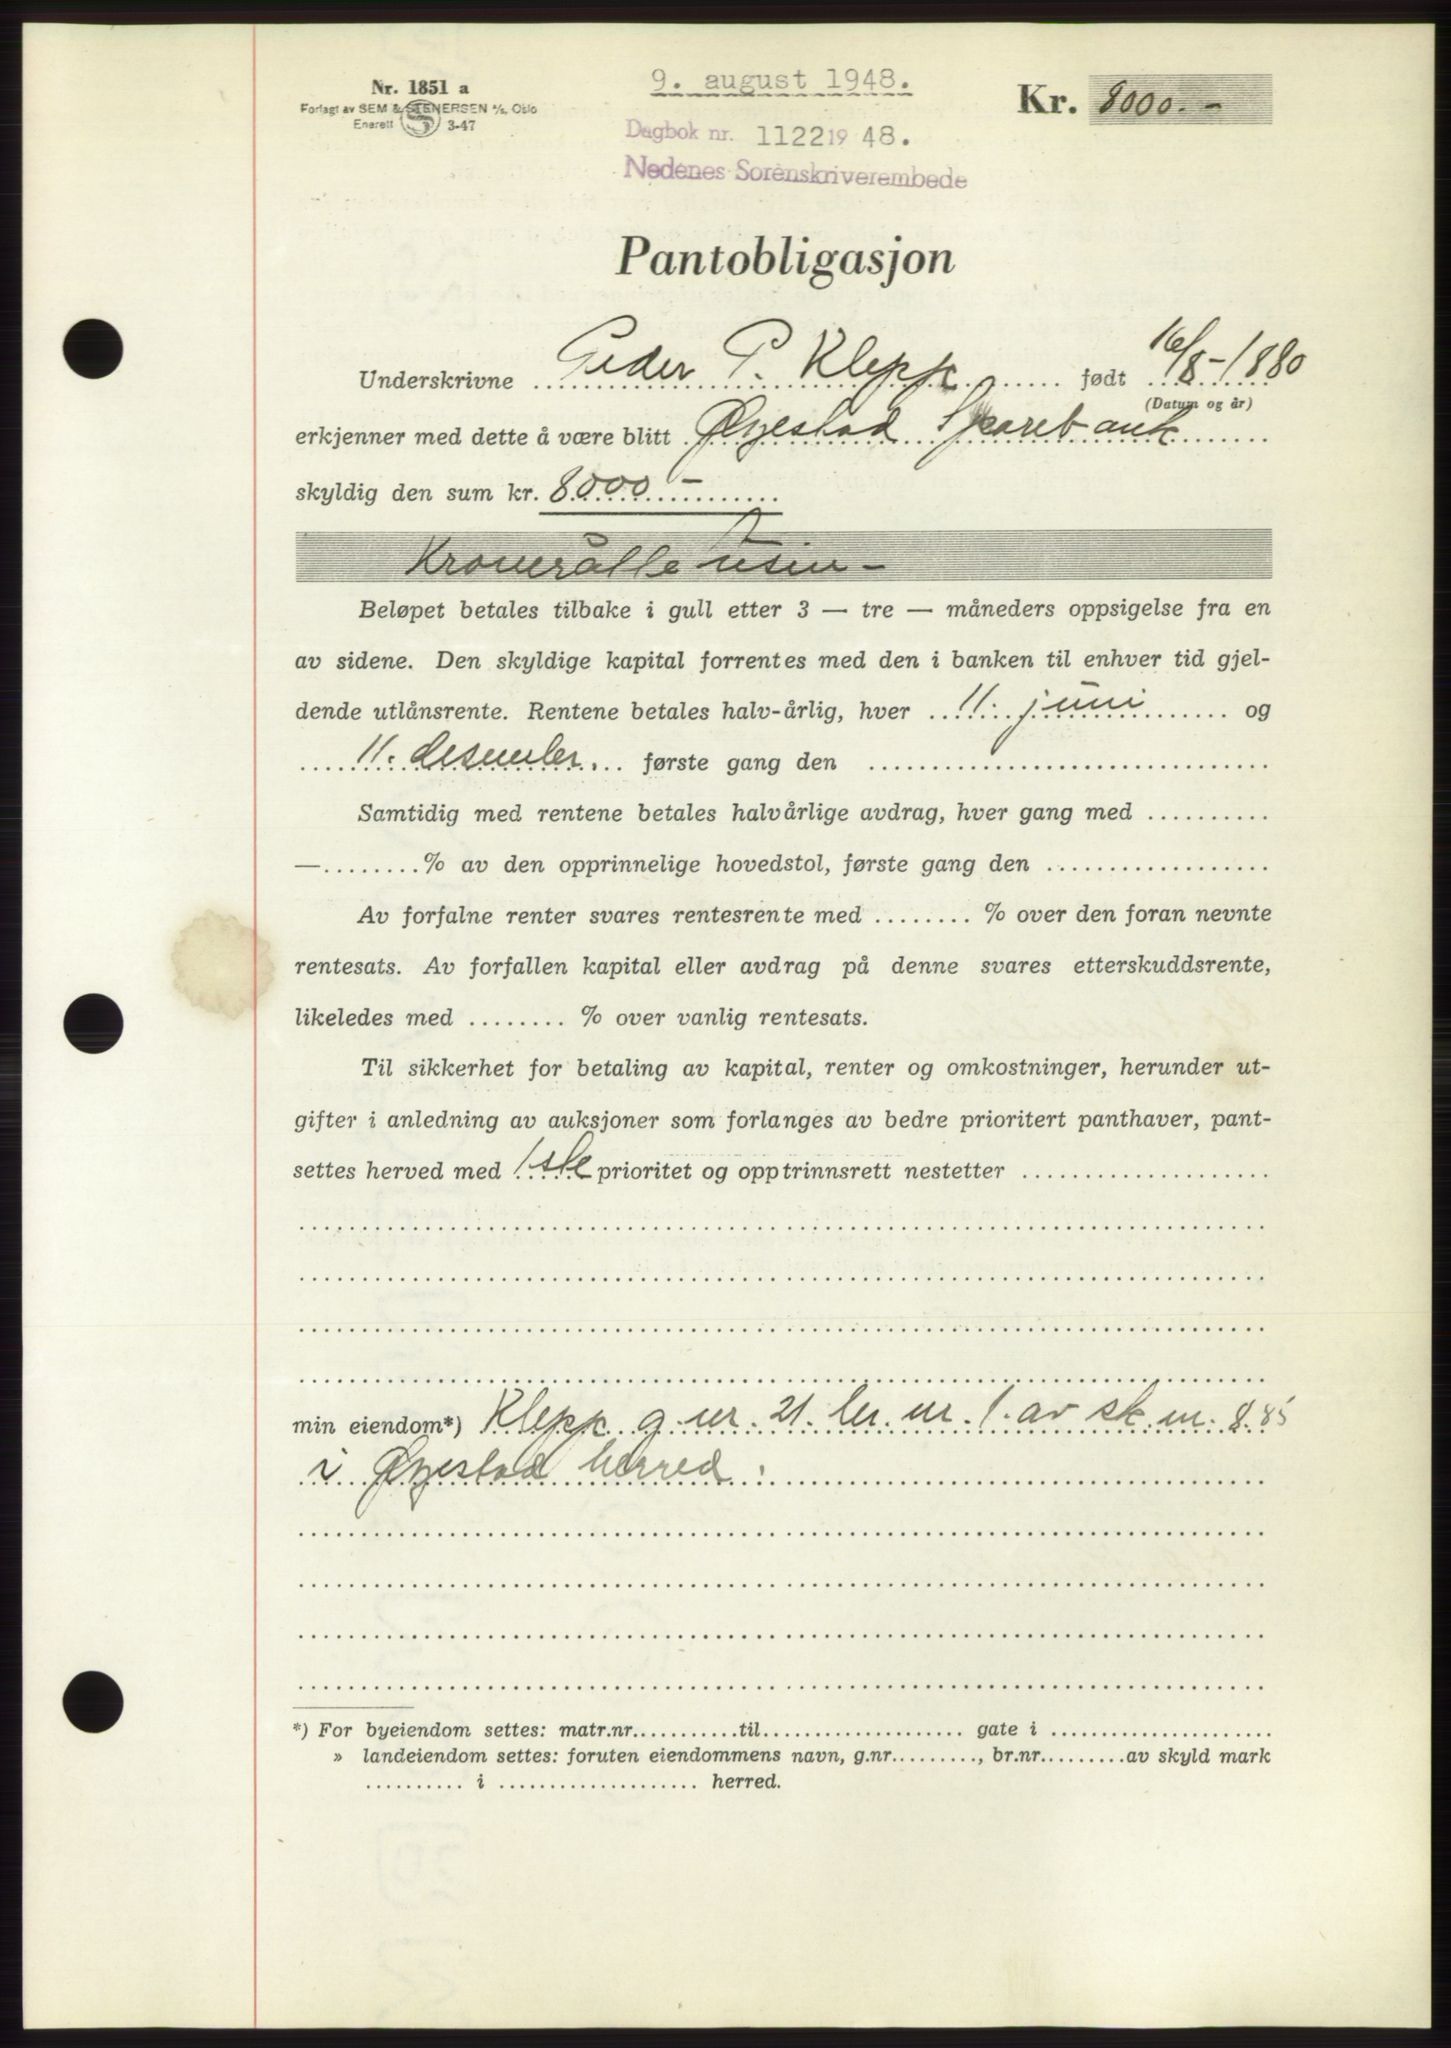 Nr. 1851 a
Forlagt av SEM & STENERSEN A/S, Oslo
Enerett 3-47
9. august 1948.
Dagbok nr. 1122 19 48.
Nedenes Sorenskriverembede
Kr. 8000.-
Pantobligasjon
Underskrivne Peder P. Klepp født 16/8-1880
(Datum og år)
erkjenner med dette å være blitt Øyestad Sparebank
skyldig den sum kr. 8000-
Kroner åtte tusen-
Beløpet betales tilbake i gull etter 3 — tre — måneders oppsigelse fra en
av sidene. Den skyldige kapital forrentes med den i banken til enhver tid gjel-
dende utlånsrente. Rentene betales halv-årlig, hver 11. juni og
11. desember. første gang den
Samtidig med rentene betales halvårlige avdrag, hver gang med
— % av den opprinnelige hovedstol, første gang den
Av forfalne renter svares rentesrente med % over den foran nevnte
rentesats. Av forfallen kapital eller avdrag på denne svares etterskuddsrente,
likeledes med % over vanlig rentesats.
Til sikkerhet for betaling av kapital, renter og omkostninger, herunder ut-
gifter i anledning av auksjoner som forlanges av bedre prioritert panthaver, pant-
settes herved med 1ste prioritet og opptrinnsrett nestetter
min eiendom*) Klepp g. nr. 21. br. nr. 1. av sk. m. 8.85
i Øyestad herred.
*) For byeiendom settes: matr.nr. til gate i
» landeiendom settes: foruten eiendommens navn, g.nr. , br.nr. av skyld mark
i herred.